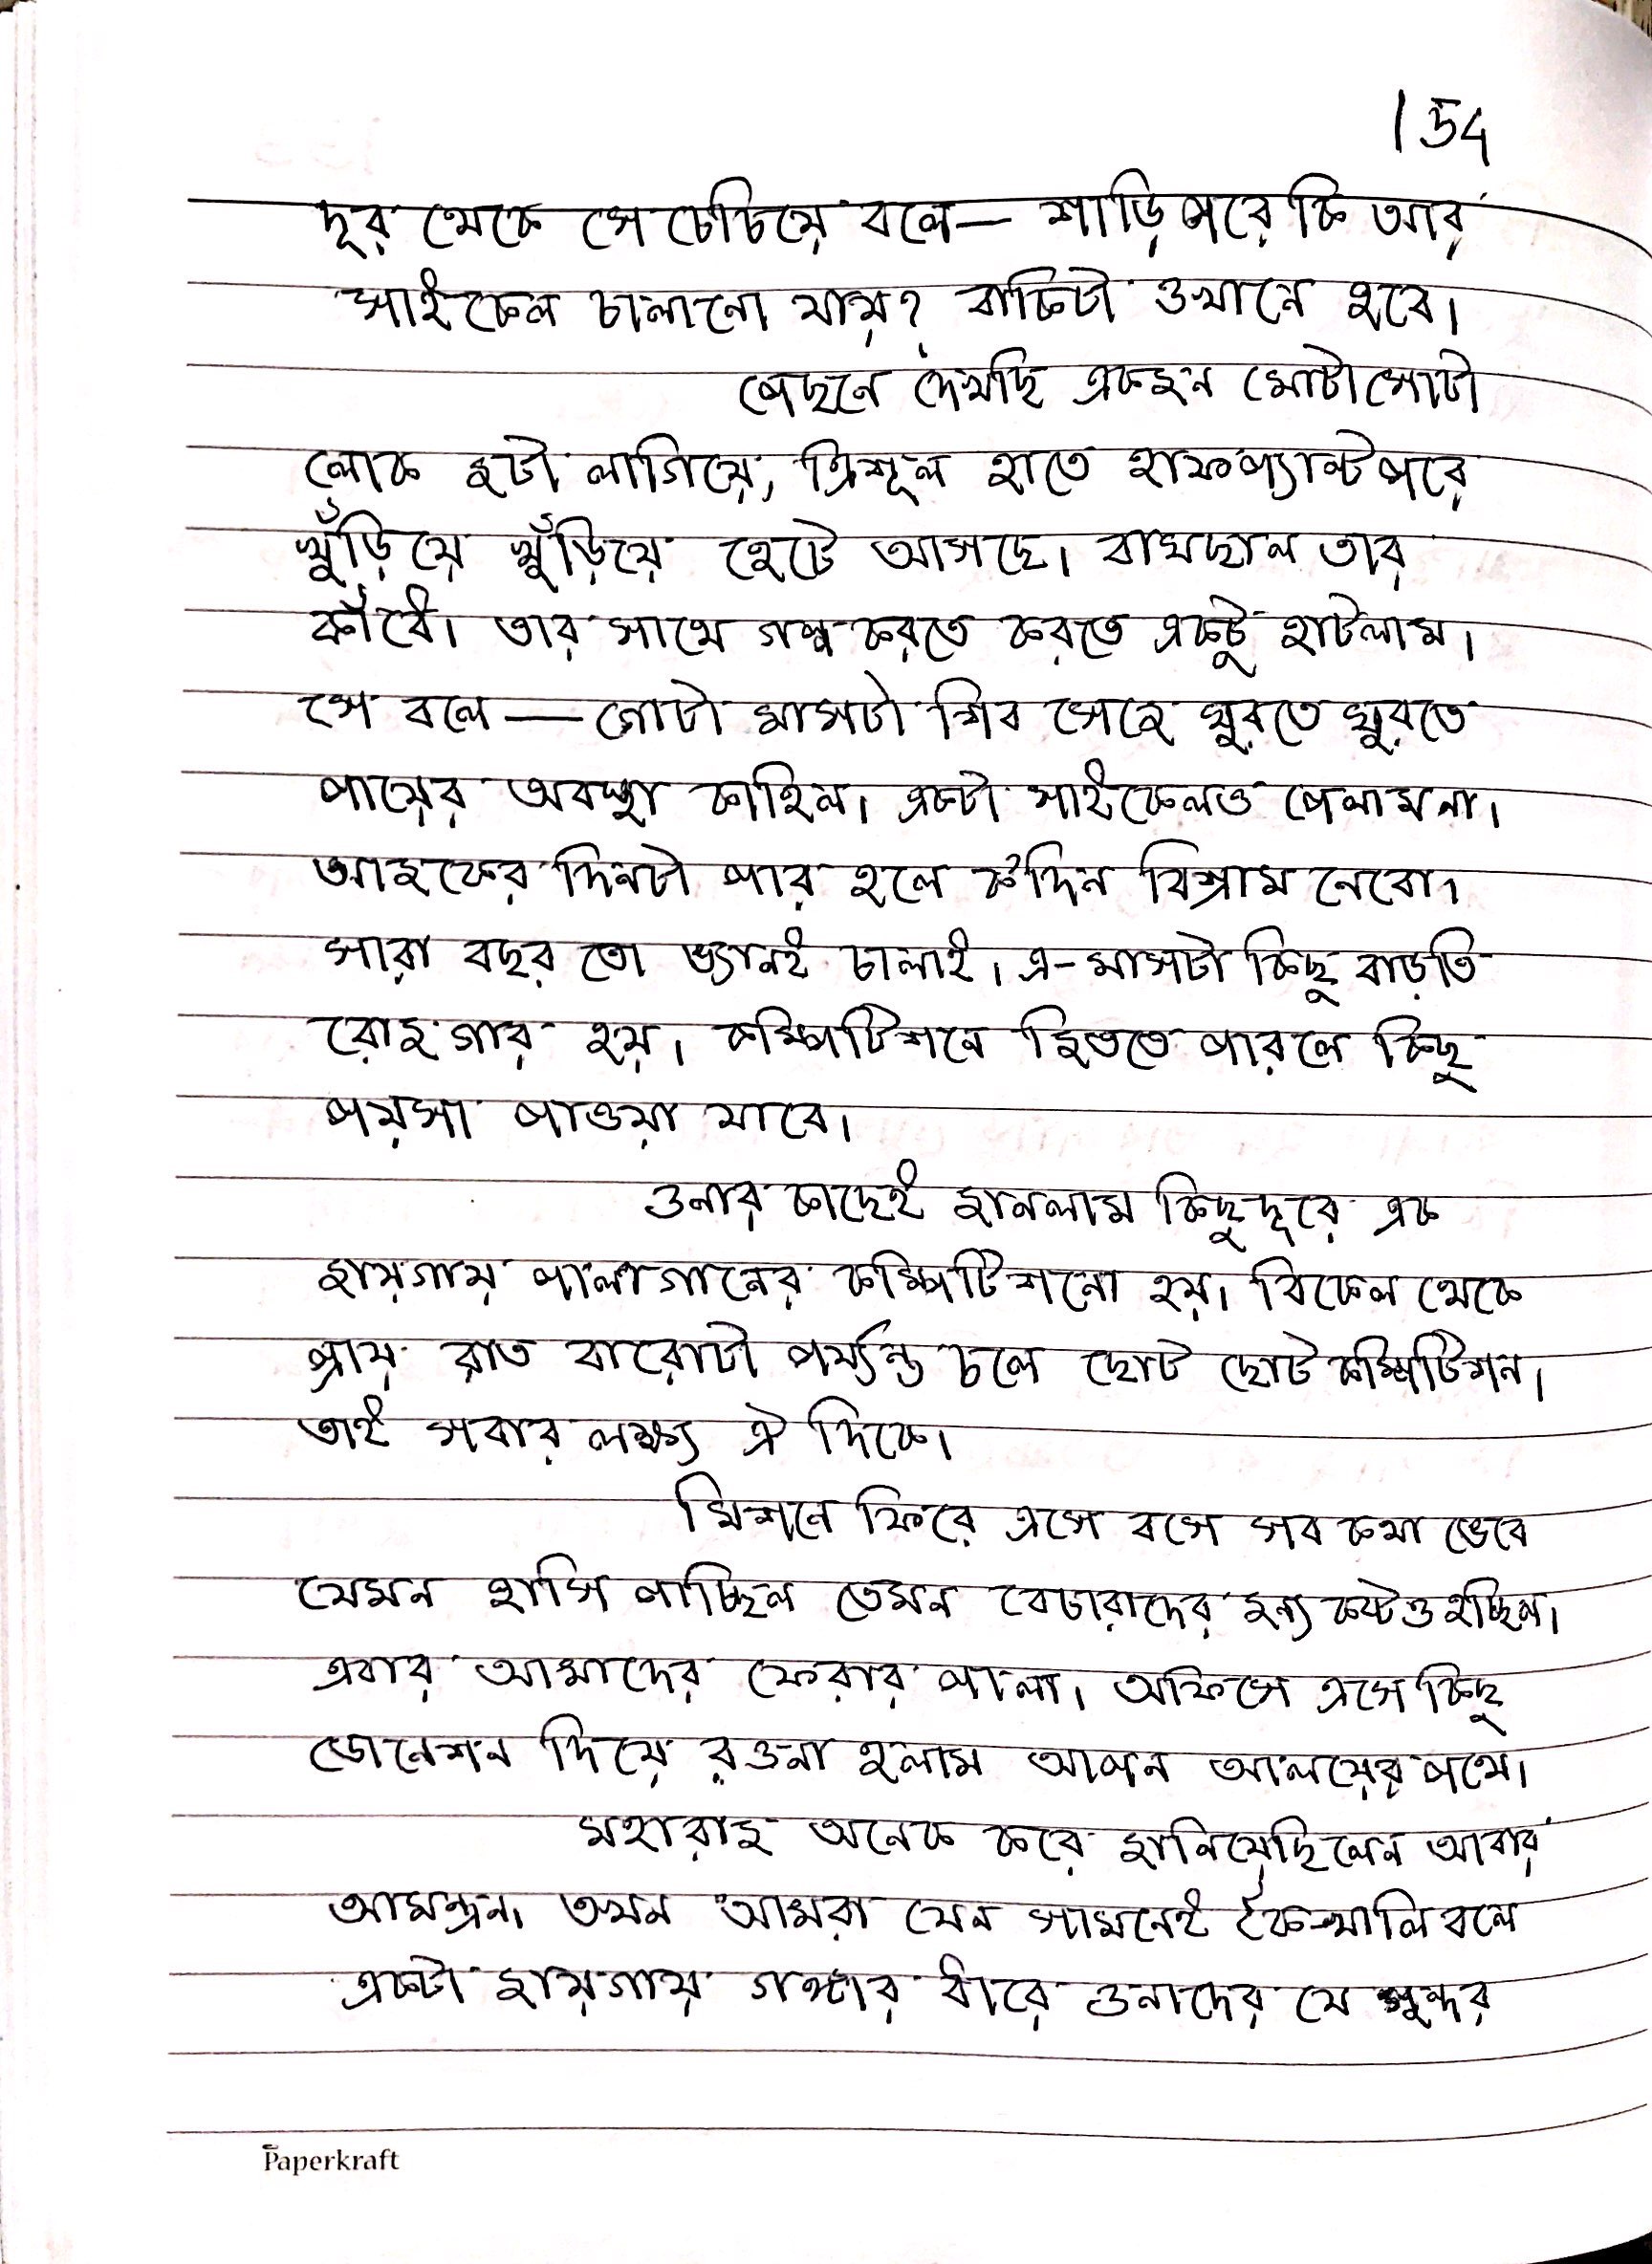 154
দূর থেকে সে চেঁচিয়ে বলে— শাড়ি পরে কি আর
সাইকেল চালানো যায়? বাকিটা ওখানে হবে।
পেছনে দেখছি একজন মোটাসোটা
লোক জটা লাগিয়ে, ত্রিশূল হাতে হাফপ্যান্ট পরে
খুঁড়িয়ে খুঁড়িয়ে হেটে আসছে। বাঘছাল তার
কাঁধে। তার সাথে গল্প করতে করতে একটু হাটলাম।
সে বলে— গোটা মাসটা শিব সেজে ঘুরতে ঘুরতে
পায়ের অবস্থা কাহিল। একটা সাইকেলও পেলামনা।
আজকের দিনটা পার হলে ক'দিন বিশ্রাম নেবো।
সারা বছর তো ভ্যানই চালাই। এ-মাসটা কিছু বাড়তি
রোজগার হয়। কম্পিটিশনে জিততে পারলে কিছু
পয়সা পাওয়া যাবে।
ওনার কাছেই জানলাম কিছুদূরে এক
জায়গায় পালাগানের কম্পিটিশনো হয়। বিকেল থেকে
প্রায় রাত বারোটা পর্য্যন্ত চলে ছোট ছোট কম্পিটিশন।
তাই সবার লক্ষ্য ঐ দিকে।
মিশনে ফিরে এসে বসে সব কথা ভেবে
যেমন হাসি পাচ্ছিল তেমন বেচারাদের জন্য কষ্টও হচ্ছিল।
এবার আমাদের ফেরার পালা। অফিসে এসে কিছু
ডোনেশন দিয়ে রওনা হলাম আপন আলয়ের পথে।
মহারাজ অনেক করে জানিয়েছিলেন আবার
আমন্ত্রন। তখন আমরা যেন সামনেই কৈ-খালি বলে
একটা জায়গায় গঙ্গার ধারে ওনাদের যে সুন্দর
Paperkraft